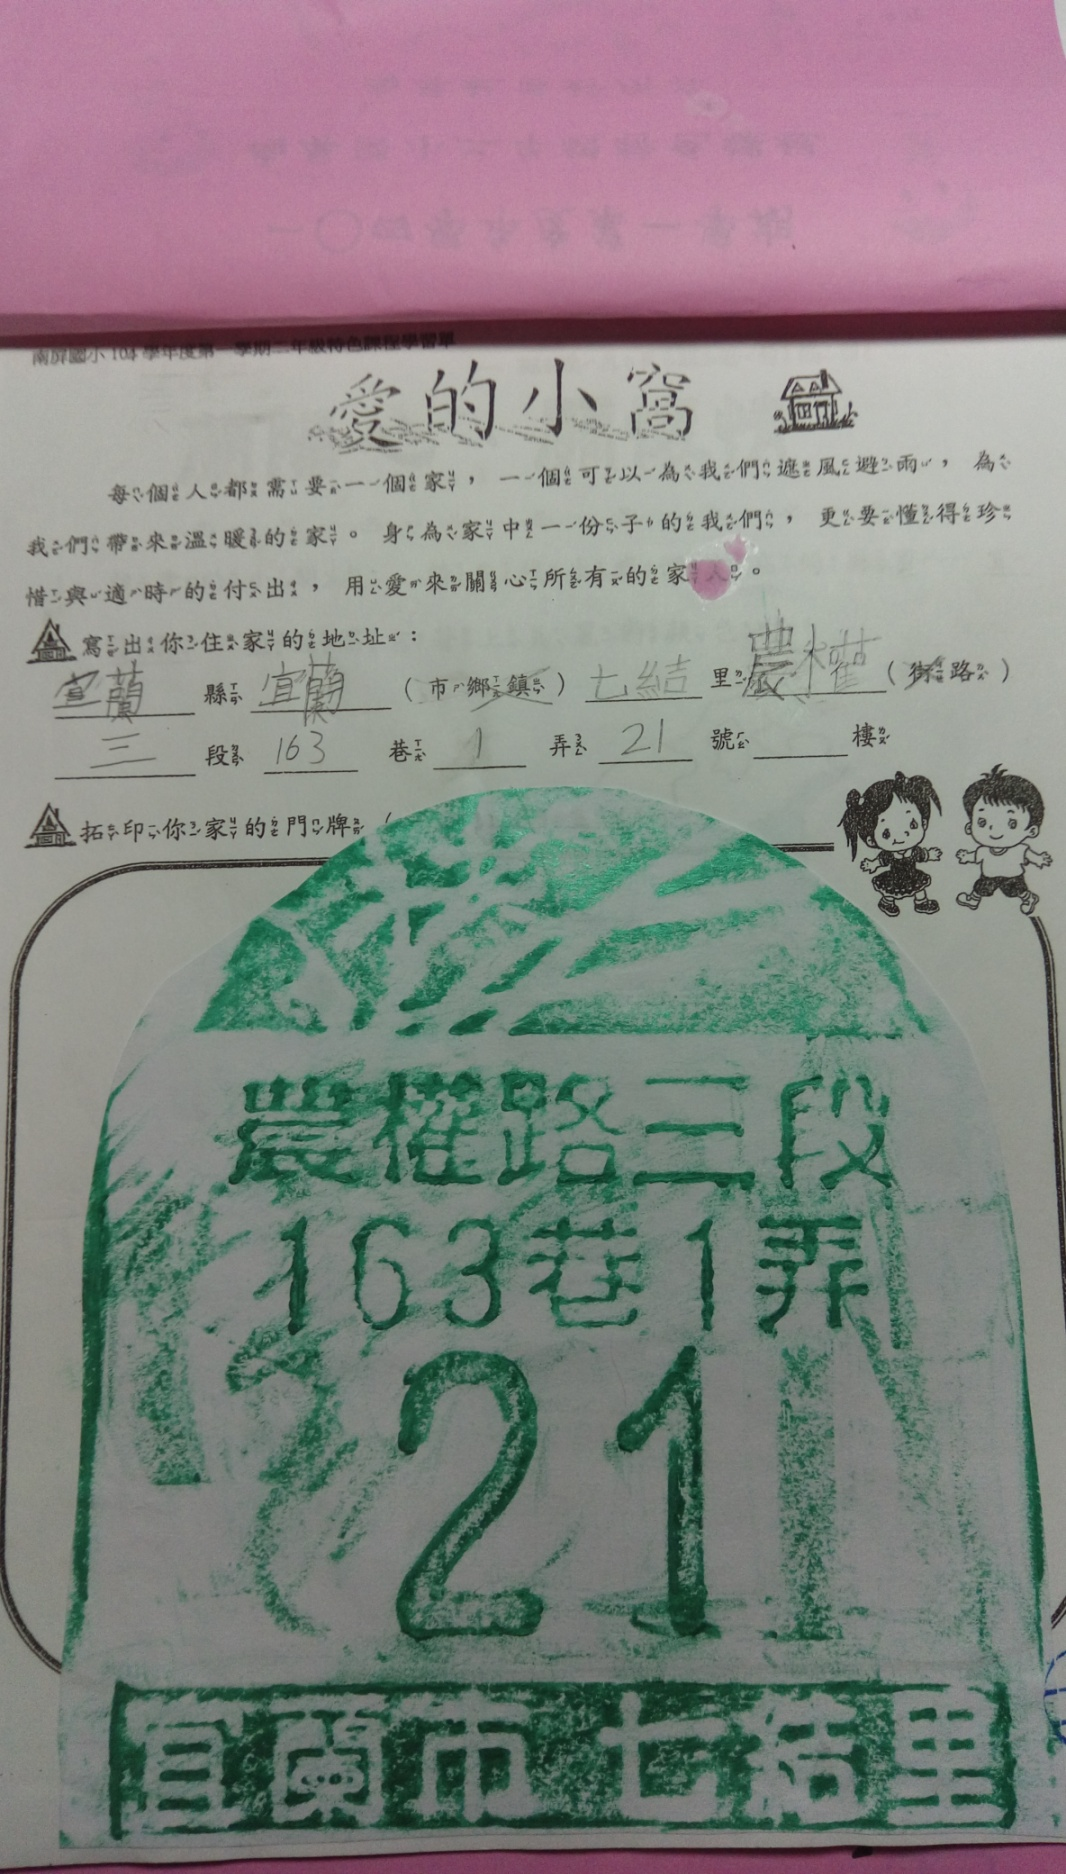 南屏國小104學年度第一學期二年級特色課程學習單
愛的小窩
每個人都需要一個家，一個可以為我們遮風避雨，為
我們帶來溫暖的家。身為家中一份子的我們，更要懂得珍
惜與適時的付出，用愛來關心所有的家人。
寫出你住家的地址：
宜蘭縣宜蘭（市鄉鎮）七結里農權（街路）
三段163巷1弄21號 樓
拓印你家的門牌（
農權路三段
163巷1弄
21
宜蘭市 七結里